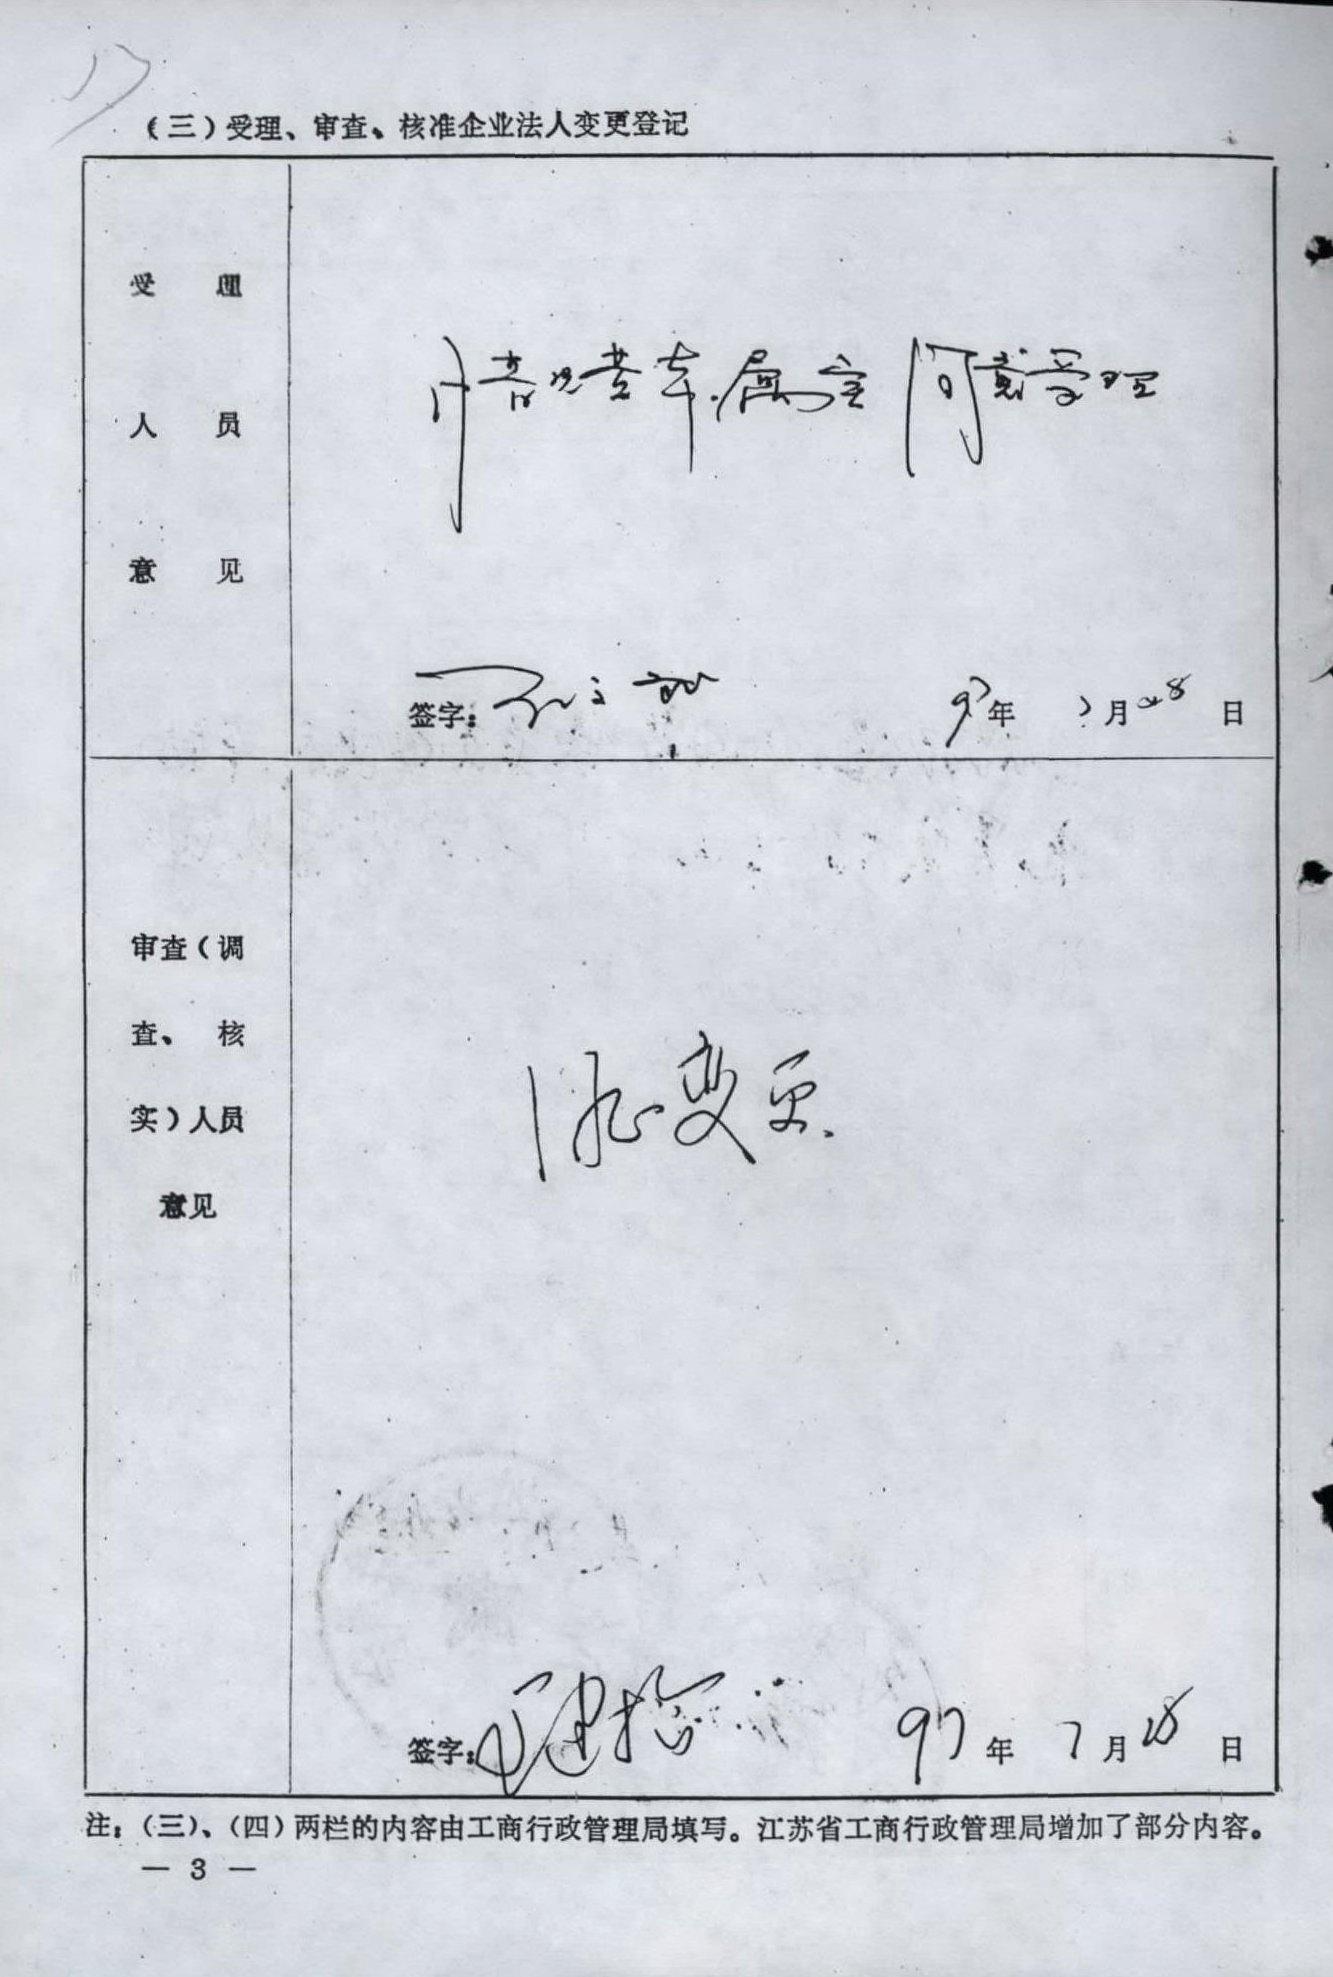 (三)受理、审查、核准企业法人变更登记
受 理
人 员
意 见
同意受理
签字:
97年 7月28日
审查(调
查、核
实)人员
意见
变更.
签字:
97年 7月28日
注:(三)、(四)两栏的内容由工商行政管理局填写。江苏省工商行政管理局增加了部分内容。
— 3 —